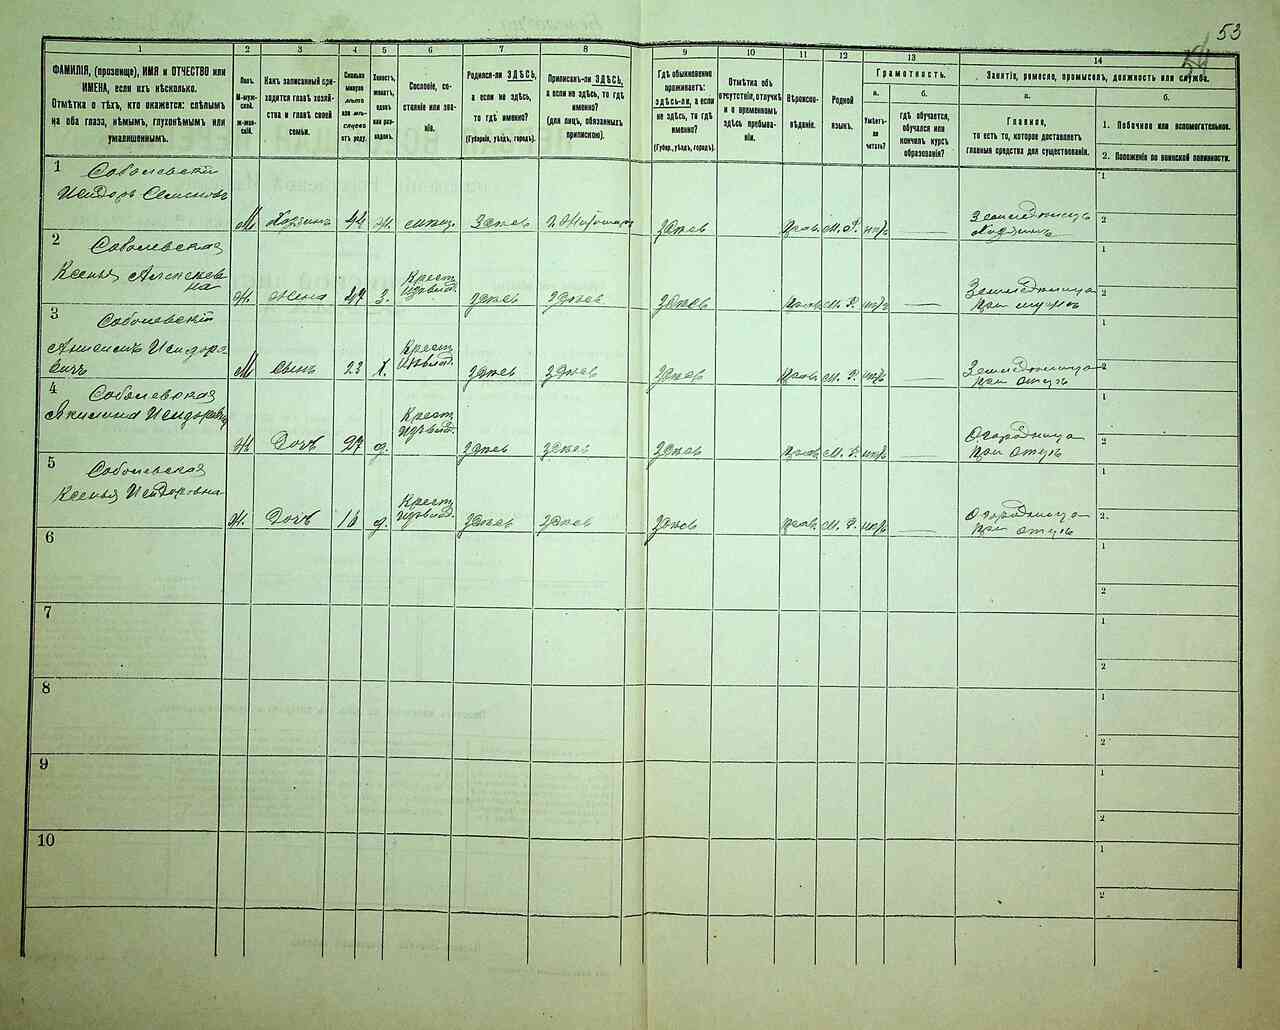 53
1 2 3 4 5 6 7 8 9 10 11 12 13 14
ФАМИЛІЯ, (прозвище), ИМЯ и ОТЧЕСТВО или
ИМЕНА, если ихъ нѣсколько.
Отмѣтка о тѣхъ, кто окажется: слѣпымъ
на оба глаза, нѣмымъ, глухонѣмымъ или
умалишеннымъ.
Полъ
М-муж-
ской.
Ж-жен-
скій.
Какъ записанный при-
ходится главѣ хозяй-
ства и главѣ своей
семьи.
Сколько
минуло
лѣтъ
или мѣ-
сяцевъ
отъ роду.
Холостъ,
женатъ,
вдовъ
или раз-
веденъ.
Сословіе, со-
стояніе или зва-
ніе.
Родился-ли ЗДѢСЬ,
а если не здѣсь,
то гдѣ именно?
(Губернія, уѣздъ, городъ).
Приписанъ-ли ЗДѢСЬ,
а если не здѣсь, то гдѣ
именно?
(для лицъ, обязанныхъ
припискою).
Гдѣ обыкновенно
проживаетъ:
здѣсь-ли, а если
не здѣсь, то гдѣ
именно?
(Губер., уѣздъ, городъ).
Отмѣтка объ
отсутствіи, отлучкѣ
и о временномъ
здѣсь пребыва-
ніи.
Вѣроиспо-
вѣданіе.
Родной
языкъ.
Грамотность.
а.
Умѣетъ-
ли
читать?
б.
Гдѣ обучается,
обучался или
кончилъ курсъ
образованія?
Занятіе, ремесло, промыселъ, должность или служба.
а.
Главное,
то есть то, которое доставляетъ
главныя средства для существованія.
б.
1. Побочное или вспомогательное.
2. Положеніе по воинской повинности.
1 Соболевскій
Исидоръ
М Хозяинъ 44 ж. здѣсь здѣсь прав. М. Р. нѣтъ
Хозяинъ
1
2
2 Соболевская
Ксенья Алексѣев
на
Ж жена 47 З. Крест. здѣсь здѣсь здѣсь прав. М. Р. нѣтъ
при мужѣ
1
2
3 Соболевскій
Исидоро
вичъ
М сынъ 23 х. Крест. здѣсь здѣсь здѣсь прав. М. Р. нѣтъ
при отцѣ
1
2
4 Соболевская
Акилина Исидоровна
Ж Дочь 27 д. Крест. здѣсь здѣсь здѣсь прав. М. Р. нѣтъ
Огородница
при отцѣ
1
2
5 Соболевская
Ксенья Исидоровна
Ж. Дочь 16 д. Крест. здѣсь здѣсь здѣсь прав. М. Р. нѣтъ
Огородница
при отцѣ
1
2.
6
1
2
7
1
2
8
1
2
9
1
2
10
1
2